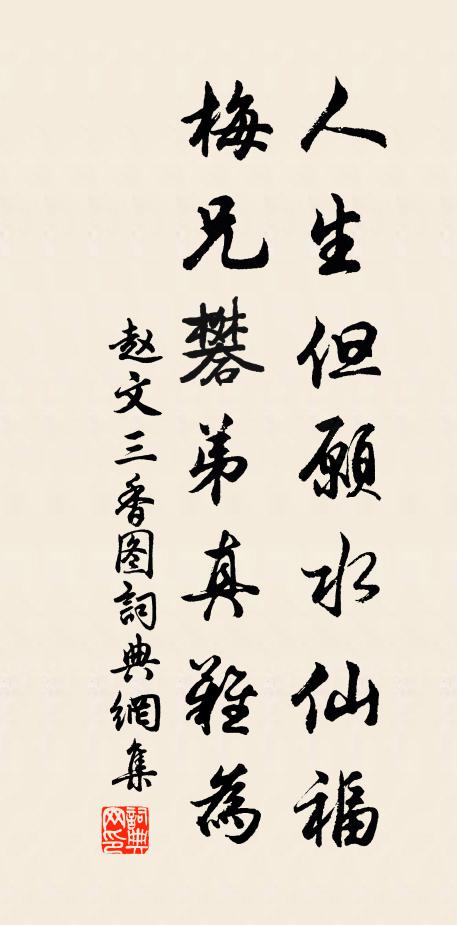 人生但願水仙福
梅兄礬弟真難為
赵文三香图詞典網集
詞典
网印